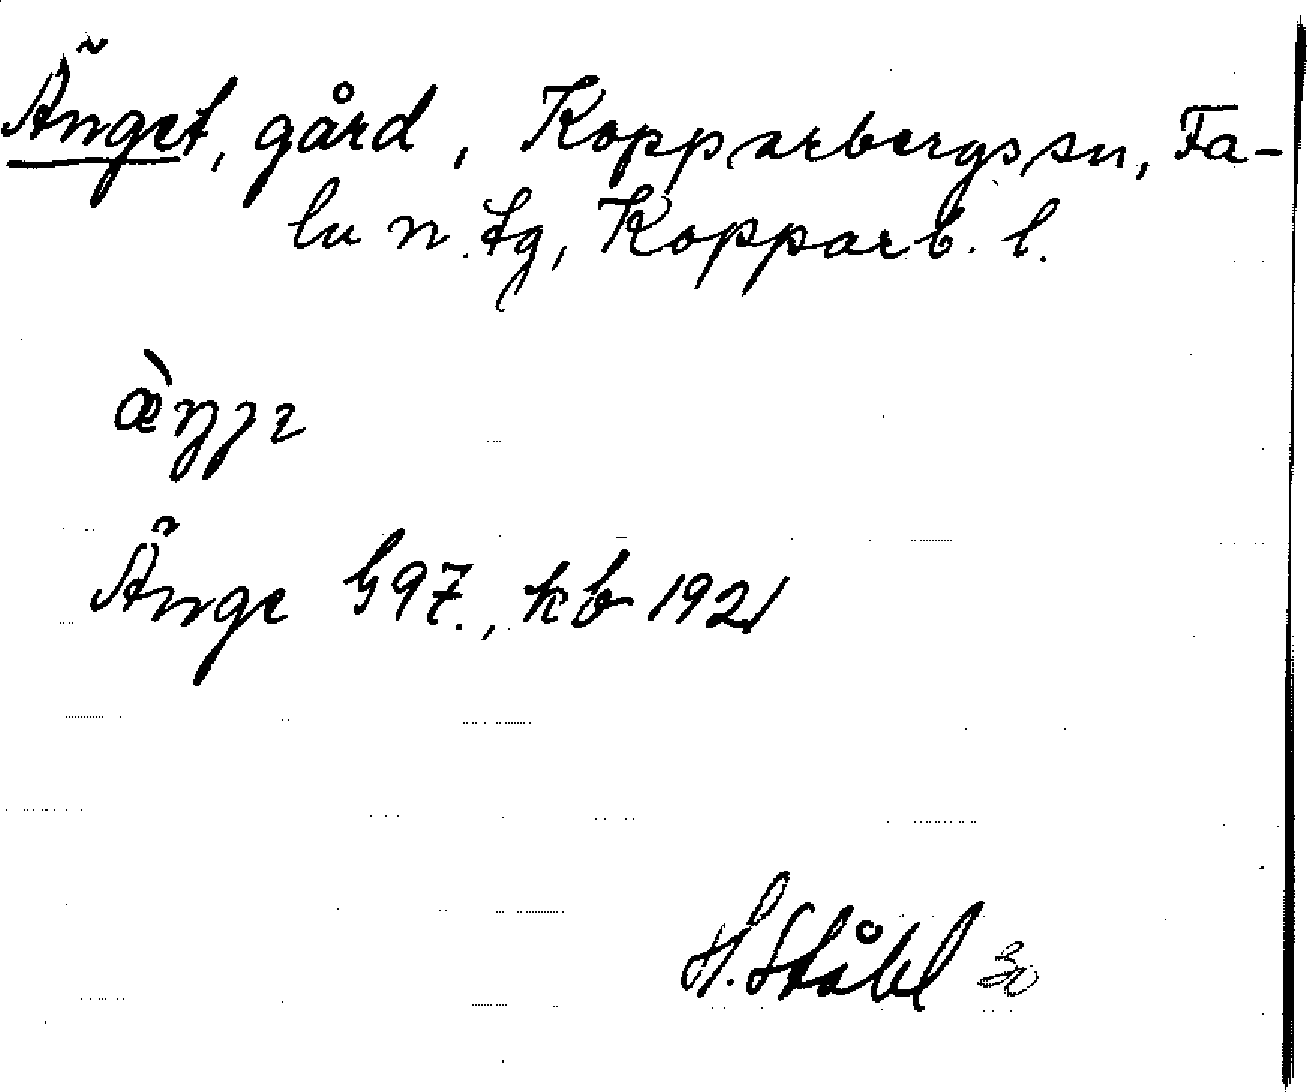 Änget, gård, Kopparbergs sn, Fa-
lu n. tg, Kopparb. l.
Änge S97., kb 1921
H. Ståhl 30